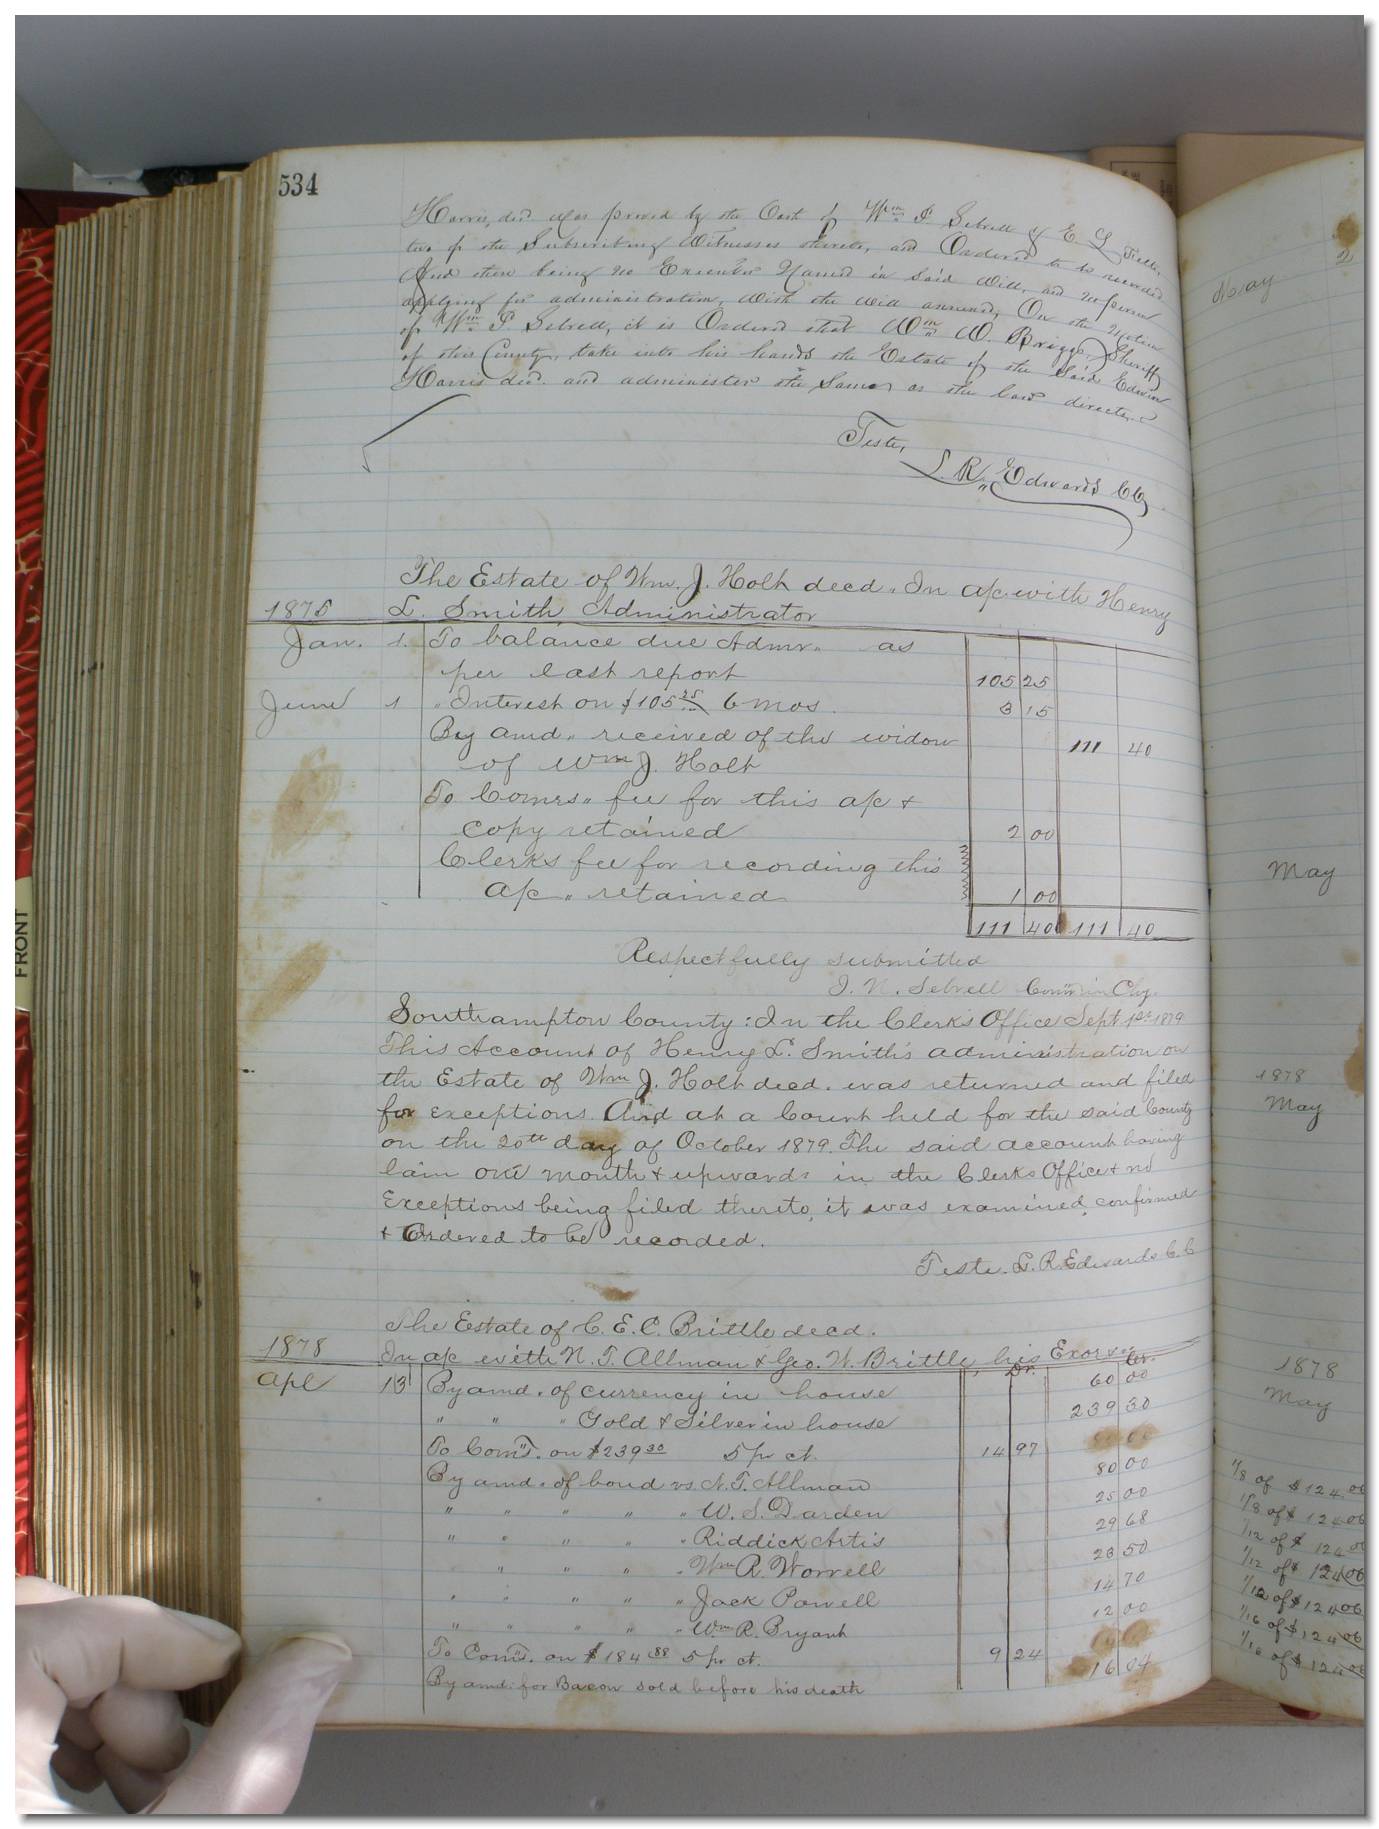 534
Harris, decd. was proved by the Oath of Wm. P. Sebrell & E. L.
two of the Subscribing Witnesses thereto, and Ordered to be recorded
And there being no Executor Named in said Will, and no person
applying for administration, With the Will annexed, On the Motion
of Wm. P. Sebrell, it is Ordered that Wm. W. Briggs, Sheriff
of this County, take into his hands the Estate of the said Edwin
Harris decd. and administer the Same, as the law directs.
Teste,
L. R. Edwards CC
The Estate of Wm. J. Holt decd. In a/c with Henry
1875 L. Smith, Administrator
Jan. 1. To balance due Admr. as
per last report 105 25
June 1 " Interest on $105 25 6 mos. 3 15
By amd. received of the widow 111 40
of Wm J. Holt
To Comrs. fee for this a/c &
copy retained 2 00
Clerks fee for recording this
a/c " retained 1 00
111 40 111 40
Respectfully submitted
J. N. Sebrell Comr in Chy.
Southampton County: In the Clerk's Office Sept 1st 1879
This Account of Henry L. Smith's administration on
the Estate of Wm J. Holt decd. was returned and filed
for exceptions. And at a Court held for the said County
on the 20th day of October 1879. The said account having
lain one month & upwards in the Clerks Office & no
Exceptions being filed thereto, it was examined, confirmed
& Ordered to be recorded.
Teste. L. R. Edwards C. C
The Estate of C. E. C. Brittle decd.
1878 In a/c with N. T. Allman & Geo. W. Brittle, his Exors.
Dr. Cr.
Apl 13 By amd. of currency in house 60 00
" " " Gold & Silver in house 239 30
To Comr. on $239 30 5 pr ct. 14 97
By amd. of bond vs. N. T. Allman 80 00
" " " " " W. S. Darden 25 00
" " " " " Riddick Artis 29 68
" " " " Wm R. Worrell 23 50
" " " " " Jack Powell 14 70
" " " " " Wm R. Bryant 12 00
To Comr. on $184 88 5 pr ct. 9 24
By amd. for Bacon sold before his death 16 04
FRONT
2
May
May
1878
May
1878
May
1/8 of $124 06
1/8 of $ 124 06
1/12 of $ 124 06
1/12 of $ 124 06
1/12 of $ 124 06
1/16 of $ 124 06
1/16 of $ 124 06